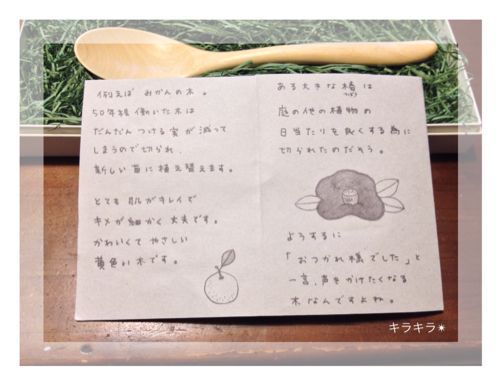 例えば みかんの木。
50年程 働いた木は
だんだん つける 実が 減って
しまうので 切られ、
新しい 苗に 植え替えます。
とても 肌がキレイで
キメが 細かく 丈夫です。
かわいくて やさしい
黄色い 木です。
ある大きな 椿は
つばき
庭の 他の 植物の
日当たりを 良くする 為に
切られたのだそう。
ようするに
「おつかれ様でした」と
一言、声をかけたくなる
木なんですよね。
キラキラ✴